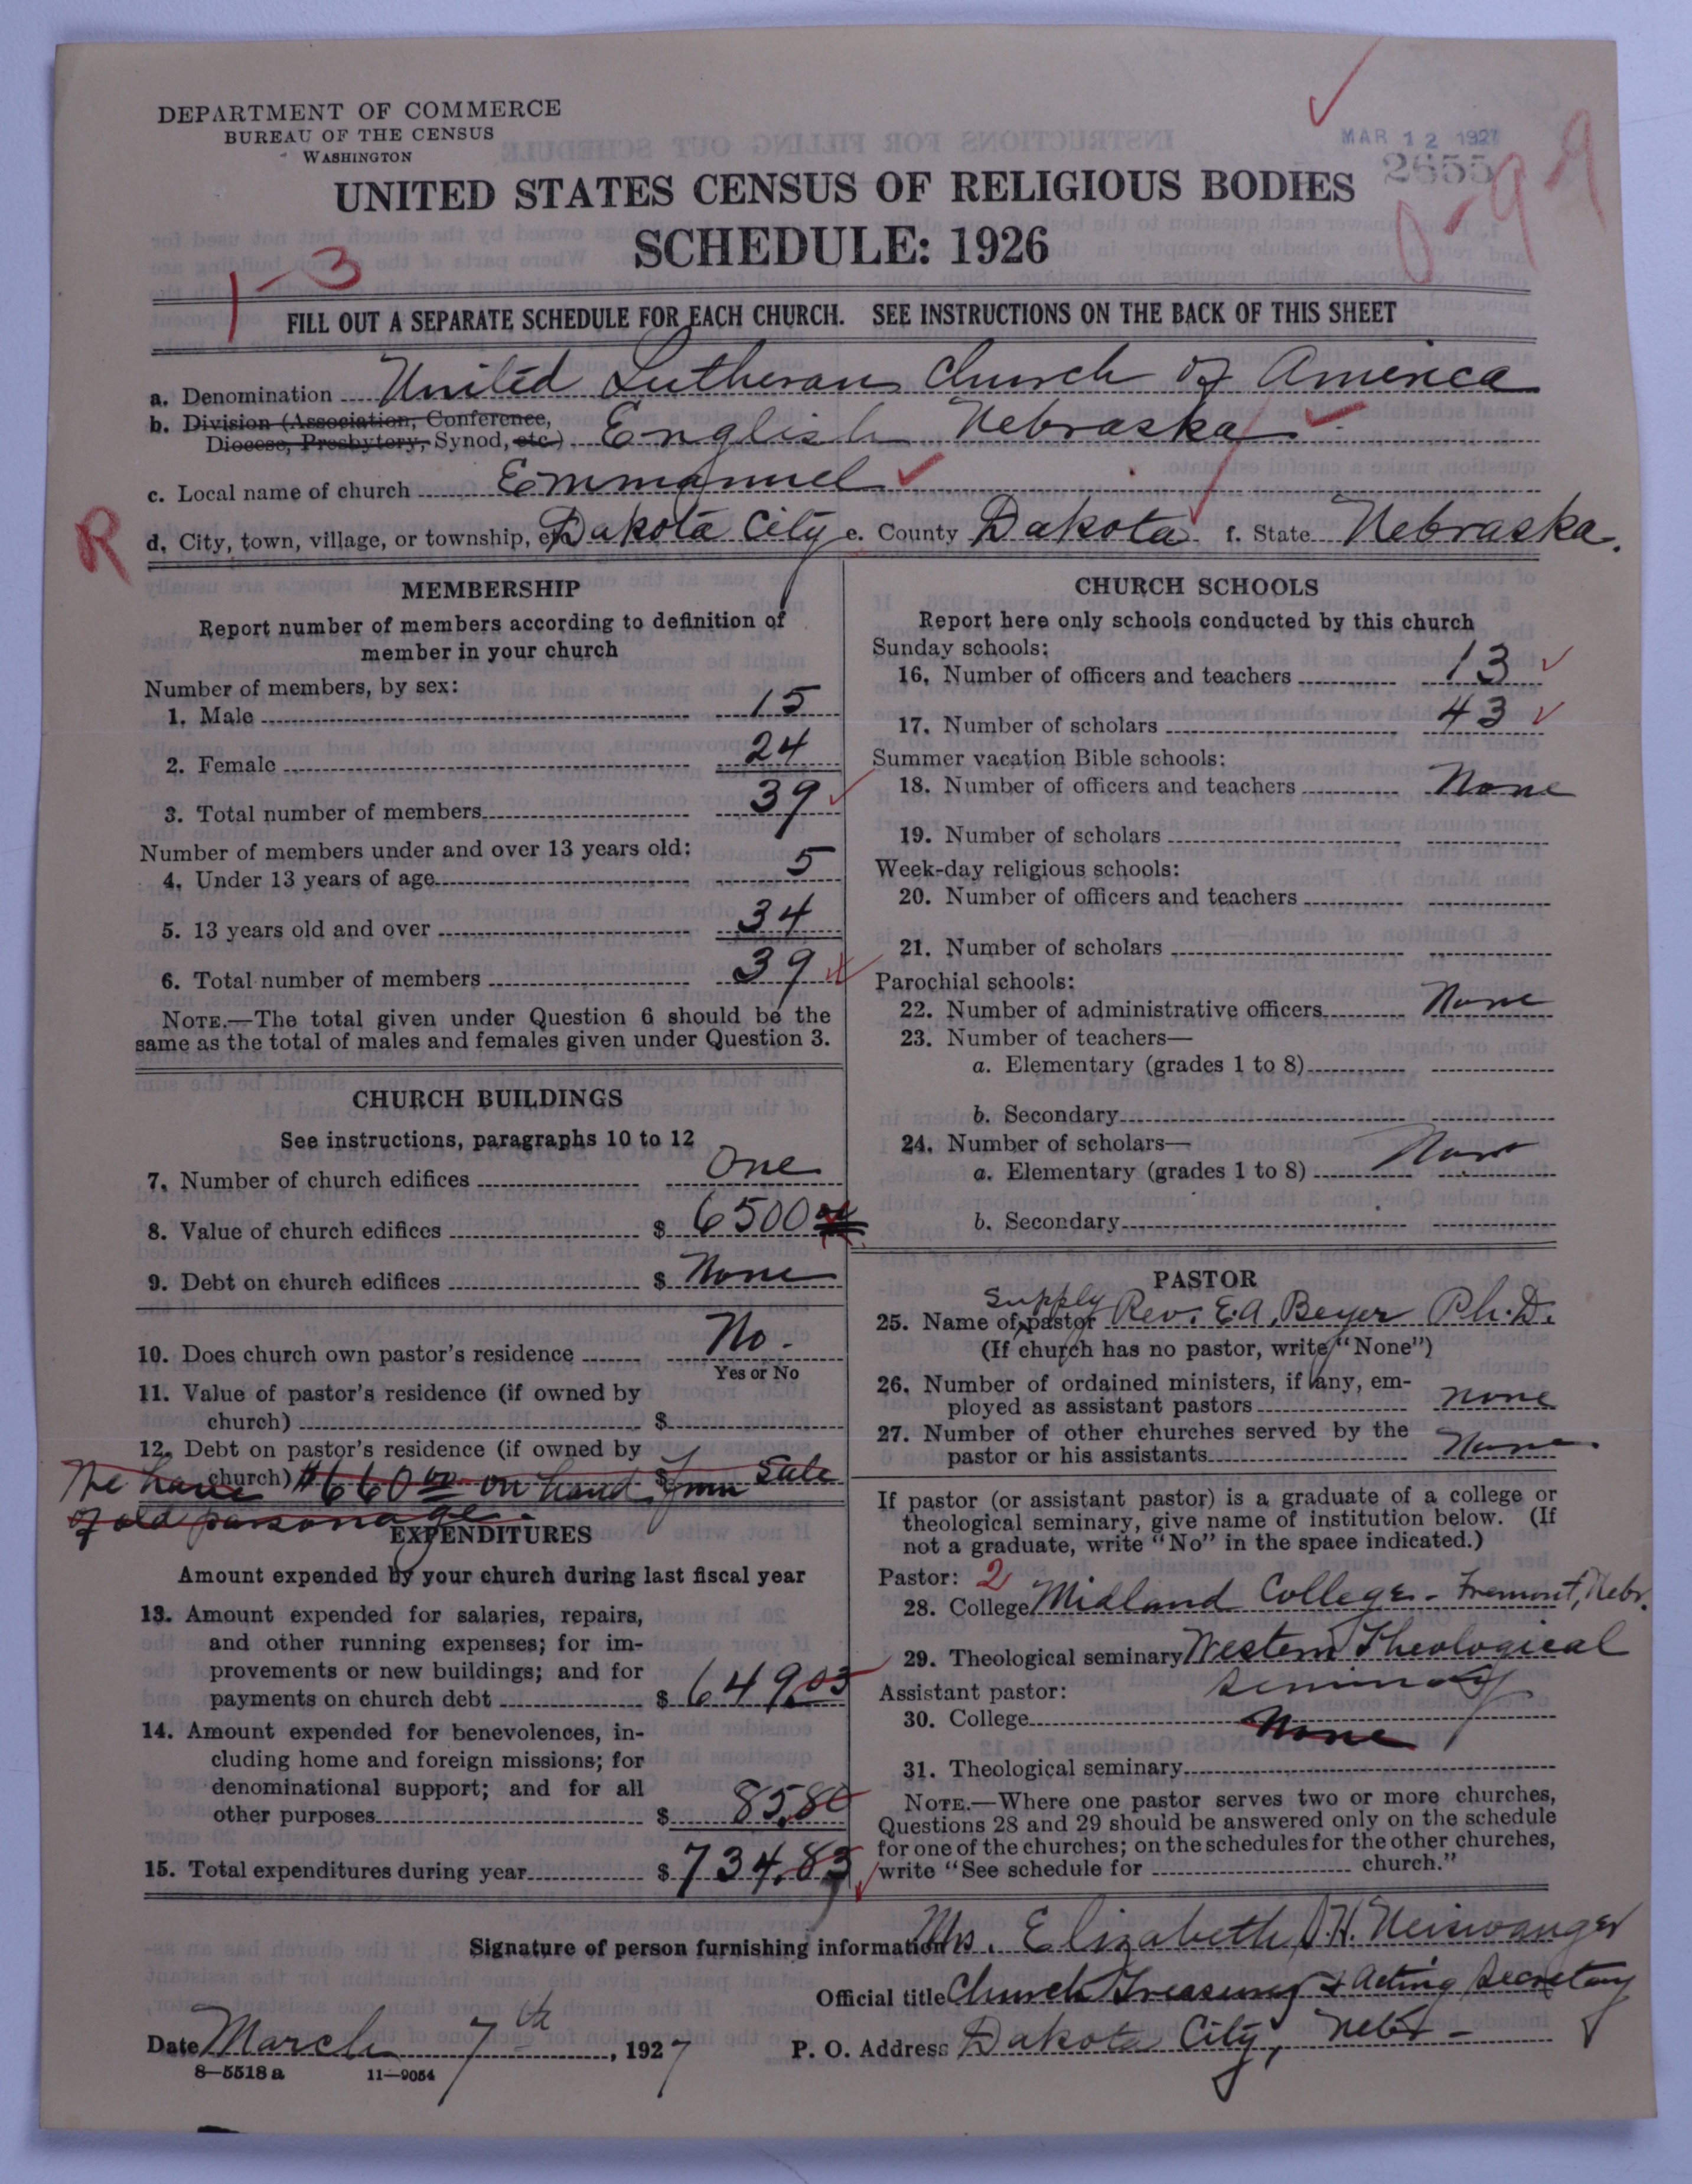 DEPARTMENT OF COMMERCE
BUREAU OF THE CENSUS
WASHINGTON
MAR 12 1927
2655
UNITED STATES CENSUS OF RELIGIOUS BODIES
SCHEDULE: 1926
1-3
FILL OUT A SEPARATE SCHEDULE FOR EACH CHURCH. SEE INSTRUCTIONS ON THE BACK OF THIS SHEET
a. Denomination United Lutheran Church of America
b. Division (Association, Conference,
Diocese, Presbytery, Synod, etc.) English Nebraska
c. Local name of church Emmanuel
R
d. City, town, village, or township, Dakota City e. County Dakota f. State Nebraska.
MEMBERSHIP
Report number of members according to definition of
member in your church
Number of members, by sex:
1. Male 15
2. Female 24
3. Total number of members 39
Number of members under and over 13 years old:
4. Under 13 years of age 5
5. 13 years old and over 34
6. Total number of members 39
NOTE.—The total given under Question 6 should be the
same as the total of males and females given under Question 3.
CHURCH BUILDINGS
See instructions, paragraphs 10 to 12
7. Number of church edifices One
8. Value of church edifices $ 6500
9. Debt on church edifices $ None
10. Does church own pastor's residence No.
Yes or No
11. Value of pastor's residence (if owned by
church) $
12. Debt on pastor's residence (if owned by
church) $
We have $660 00 on hand from Sale
of old parsonage.
EXPENDITURES
Amount expended by your church during last fiscal year
13. Amount expended for salaries, repairs,
and other running expenses; for im-
provements or new buildings; and for
payments on church debt $ 649.03
14. Amount expended for benevolences, in-
cluding home and foreign missions; for
denominational support; and for all
other purposes $ 85.80
15. Total expenditures during year $ 734.83
CHURCH SCHOOLS
Report here only schools conducted by this church
Sunday schools:
16. Number of officers and teachers 13
17. Number of scholars 43
Summer vacation Bible schools:
18. Number of officers and teachers None
19. Number of scholars
Week-day religious schools:
20. Number of officers and teachers
21. Number of scholars
Parochial schools:
22. Number of administrative officers None
23. Number of teachers—
a. Elementary (grades 1 to 8)
b. Secondary
24. Number of scholars—
a. Elementary (grades 1 to 8) None
b. Secondary
PASTOR
Supply
25. Name of pastor Rev. E.A. Beyer Ph.D.
(If church has no pastor, write "None")
26. Number of ordained ministers, if any, em-
ployed as assistant pastors none
27. Number of other churches served by the
pastor or his assistants None.
If pastor (or assistant pastor) is a graduate of a college or
theological seminary, give name of institution below. (If
not a graduate, write "No" in the space indicated.)
Pastor: 2
28. College Midland College - Fremont, Nebr.
29. Theological seminary Western Theological
Seminary
Assistant pastor:
30. College None
31. Theological seminary
NOTE.—Where one pastor serves two or more churches,
Questions 28 and 29 should be answered only on the schedule
for one of the churches; on the schedules for the other churches,
write "See schedule for church."
Signature of person furnishing information Mrs. Elizabeth H. Neiswanger
Official title Church Treasurer & Acting Secretary
Date March 7th, 1927 P. O. Address Dakota City, Nebr-
8—5518 a 11—9054